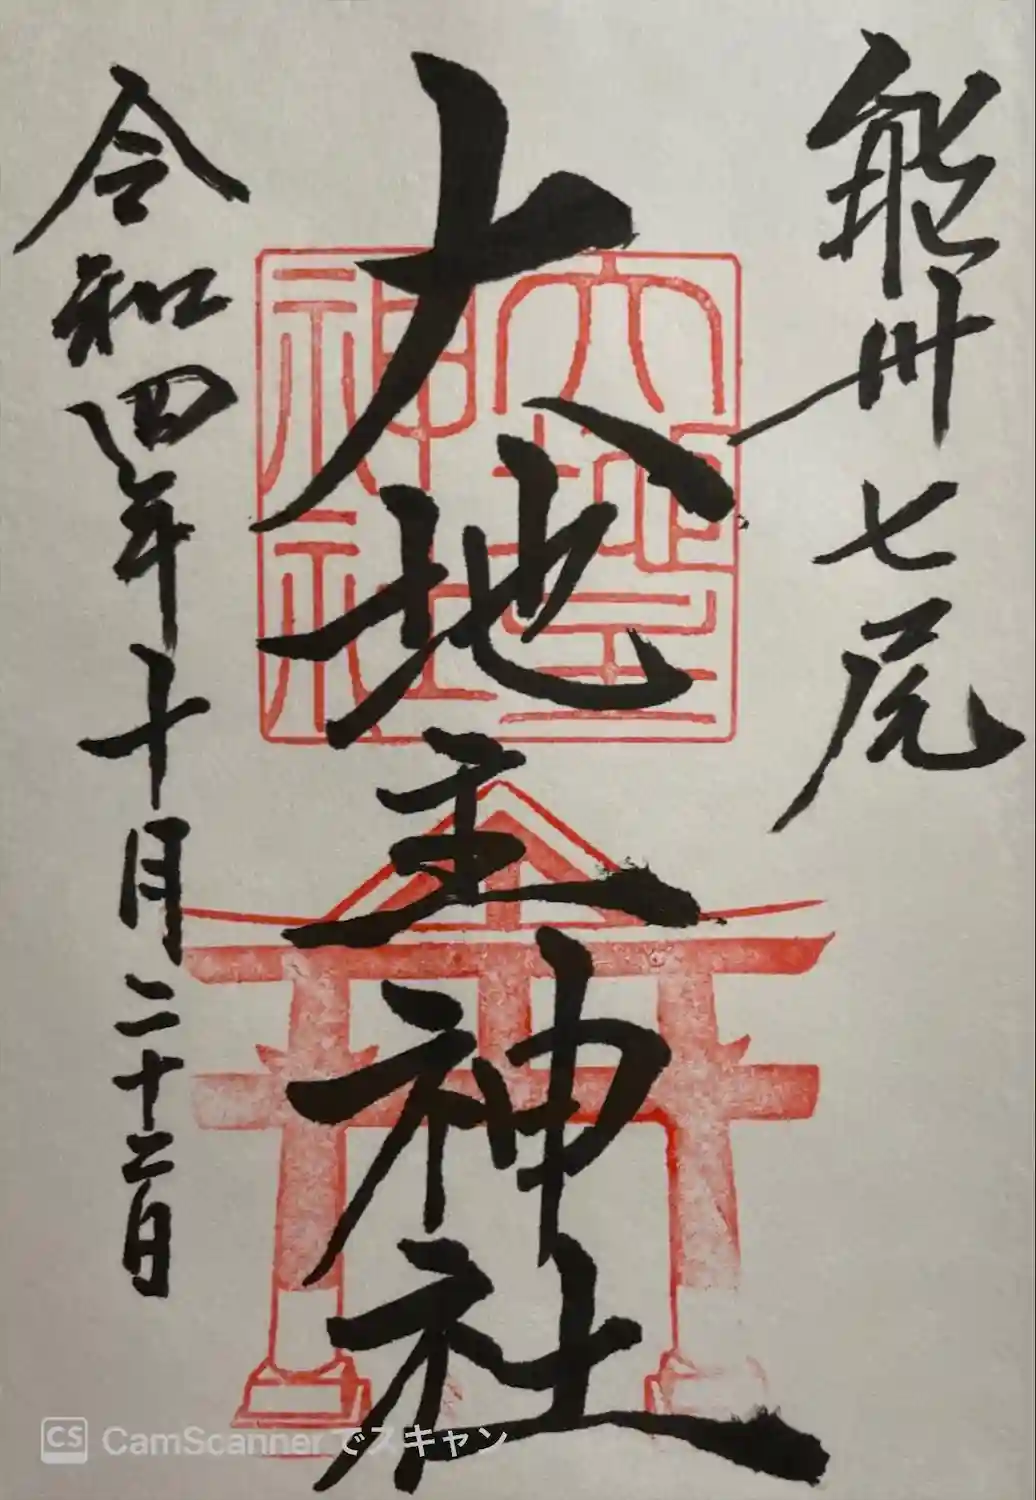 能州七尾
大地主神社
令和四年十月二十二日
大地主
神社
CS CamScannerでスキャン